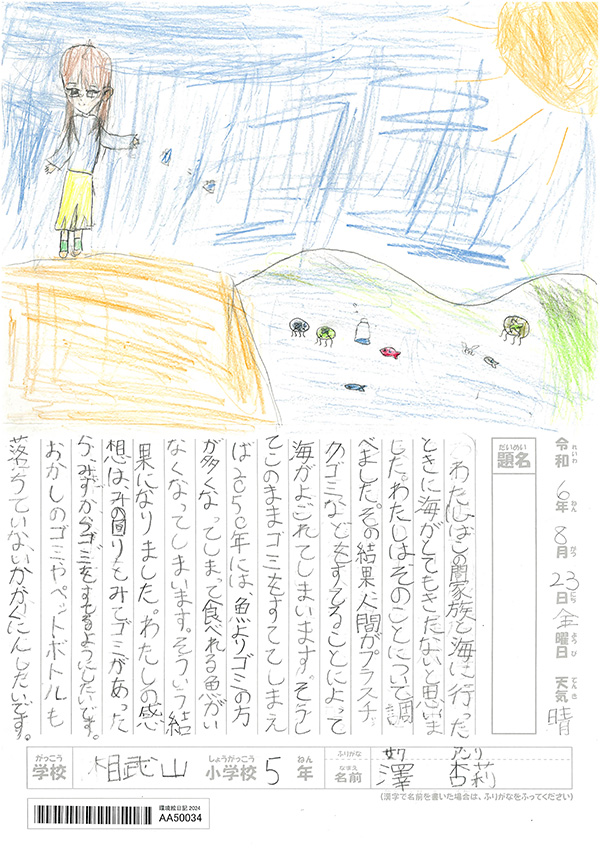 令和6年8月23日金曜日 天気 晴
れいわ ねん がつ にち ようび てんき
だいめい
題名
わたしはこの間家族と海に行った
ときに海がとてもきたないと思いま
した。わたしはそのことについて調
べました。その結果人間がプラスチッ
クゴミなどをすてることによって
海がよごれてしまいます。そうし
てこのままゴミをすててしまえ
ば2050年には、魚よりゴミの方
が多くなってしまって食べれる魚がい
なくなってしまいます。そういう結
果になりました。わたしの感
想は、みの回りをみてゴミがあった
ら、みずからゴミをすてるようにしたいです。
おかしのゴミやペットボトルも
落ちていないかかくにんしたいです。
がっこう しょうがっこう ねん ふりがな サワ アンリ
学校 相武山 小学校 5年 なまえ 名前 澤 杏莉
(漢字で名前を書いた場合は、ふりがなをふってください)
環境絵日記 2024
AA50034